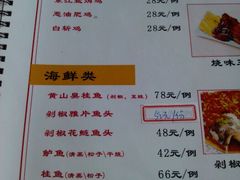 28元/例
葱油肥鸡 28元/例
白斩鸡 28元/例
烧味
海鲜类
黄山臭桂鱼（剁椒、豆豉） 78元/例
剁椒雅片鱼头
剁椒花鲢鱼头 48元/例
鲈鱼（清蒸\松子\干烧） 42元/例
桂鱼（清蒸\松子） 66元/例
剁椒